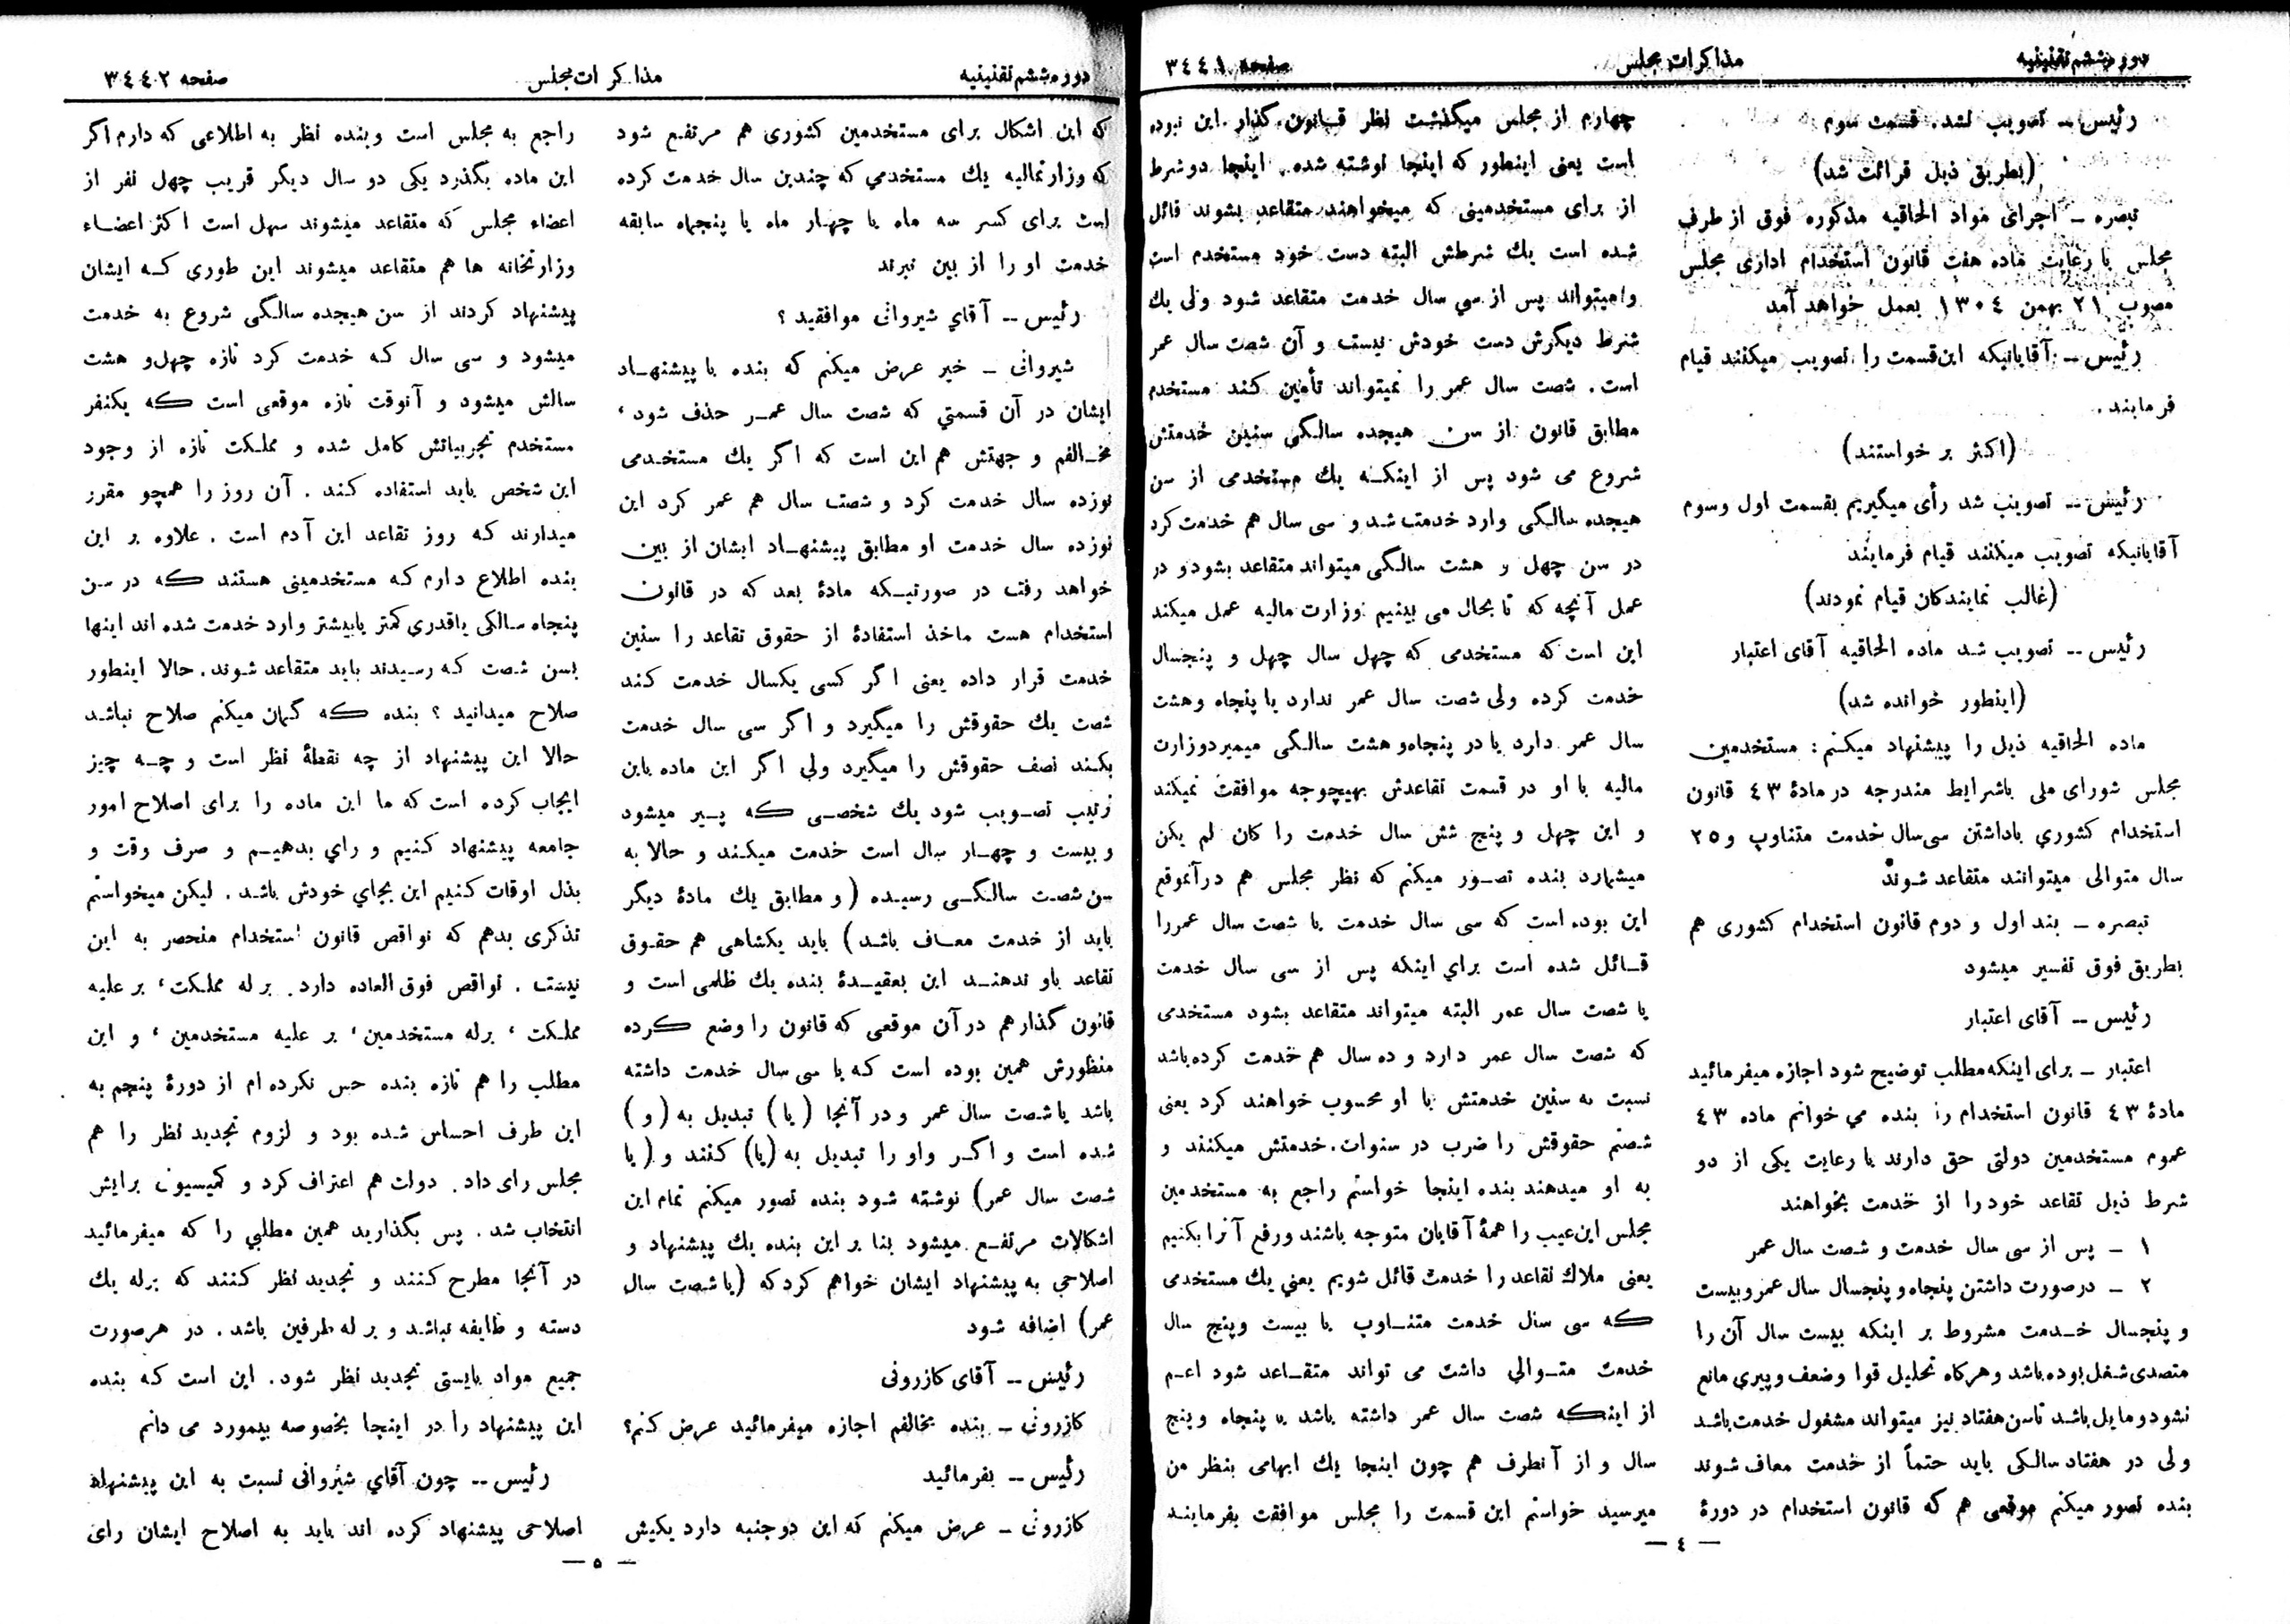 دوره ششم تقنینیه
مذاکرات مجلس
صفحه ۳۴۴۱
رئیس ــ تصویب نشد. قسمت سوم
(بطریق ذیل قرائت شد)
تبصره ــ اجرای مواد الحاقیه مذکوره فوق از طرف
مجلس با رعایت ماده هفت قانون استخدام اداری مجلس
مصوب ۲۱ بهمن ۱۳۰۴ بعمل خواهد آمد
رئیس ــ آقایانیکه این قسمت را تصویب میکنند قیام
فرمایند.
(اکثر بر خواستند)
رئیس ــ تصویب شد رأی میگیریم بقسمت اول وسوم
آقایانیکه تصویب میکنند قیام فرمایند
(غالب نمایندکان قیام نمودند)
رئیس ــ تصویب شد ماده الحاقیه آقای اعتبار
(اینطور خوانده شد)
ماده الحاقیه ذیل را پیشنهاد میکنم: مستخدمین
مجلس شورای ملی باشرایط مندرجه در مادهٔ ۴۳ قانون
استخدام کشوري باداشتن سی سال خدمت متناوب و ۲۵
سال متوالی میتوانند متقاعد شوند
تبصره ــ بند اول و دوم قانون استخدام کشوری هم
بطریق فوق تفسیر میشود
رئیس ــ آقای اعتبار
اعتبار ــ برای اینکه مطلب توضیح شود اجازه میفرمائید
مادهٔ ۴۳ قانون استخدام را بنده می خوانم ماده ۴۳
عموم مستخدمین دولتی حق دارند با رعایت یکی از دو
شرط ذیل تقاعد خود را از خدمت بخواهند
۱ ــ پس از سی سال خدمت و شصت سال عمر
۲ ــ درصورت داشتن پنجاه و پنجسال سال عمر و بیست
و پنجسال خدمت مشروط بر اینکه بیست سال آن را
متصدی شغل بوده باشد و هرکاه تحلیل قوا و ضعف و پیري مانع
نشود و مایل باشد تاسن هفتاد نیز میتواند مشغول خدمت باشد
ولی در هفتاد سالکی باید حتماً از خدمت معاف شوند
بنده تصور میکنم موقعی هم که قانون استخدام در دورهٔ
چهارم از مجلس میگذشت نظر قانون گذار این نبوده
است یعنی اینطور که اینجا نوشته شده. اینجا دو شرط
از برای مستخدمینی که میخواهند متقاعد بشوند قائل
شده است یك شرطش البته دست خود مستخدم است
و میتواند پس از سي سال خدمت متقاعد شود ولی یك
شرط دیگرش دست خودش نیست و آن شصت سال عمر
است. شصت سال عمر را نمیتواند تأمین کند مستخدم
مطابق قانون از سن هیجده سالگی سنین خدمتش
شروع می شود پس از اینکه یك مستخدمی از سن
هیجده سالگی وارد خدمت شد و سی سال هم خدمت کرد
در سن چهل و هشت سالگی میتواند متقاعد بشود و در
عمل آنچه که تا بحال می بینیم وزارت مالیه عمل میکند
این است که مستخدمی که چهل سال چهل و پنجسال
خدمت کرده ولی شصت سال عمر ندارد یا پنجاه و هشت
سال عمر دارد یا در پنجاه و هشت سالگی میمیرد وزارت
مالیه با او در قسمت تقاعدش بهیچوجه موافقت نمیکند
و این چهل و پنج شش سال خدمت را کان لم یکن
میشمارد بنده تصور میکنم که نظر مجلس هم در آنموقع
این بوده است که سی سال خدمت یا شصت سال عمر را
قائل شده است براي اینکه پس از سی سال خدمت
یا شصت سال عمر البته میتواند متقاعد بشود مستخدمی
که شصت سال عمر دارد و ده سال هم خدمت کرده باشد
نسبت به سنین خدمتش با او محسوب خواهند کرد یعنی
شصتم حقوقش را ضرب در سنوات. خدمتش میکنند و
به او میدهند بنده اینجا خواستم راجع به مستخدمین
مجلس این عیب را همهٔ آقایان متوجه باشند و رفع آنرا بکنیم
یعنی ملاك تقاعد را خدمت قائل شویم یعني یك مستخدمی
که سی سال خدمت متناوب یا بیست و پنج سال
خدمت متوالي داشت می تواند متقاعد شود اعم
از اینکه شصت سال عمر داشته باشد یا پنجاه و پنج
سال و از آنطرف هم چون اینجا یك ابهامی بنظر من
میرسید خواستم این قسمت را مجلس موافقت بفرمایند
— ۴ —
دوره ششم تقنینیه
مذاکرات مجلس
صفحه ۳۴۴۲
که این اشکال برای مستخدمین کشوری هم مرتفع شود
که وزارتمالیه یك مستخدمي که چندین سال خدمت کرده
است برای کسر سه ماه یا چهار ماه یا پنجماه سابقه
خدمت او را از بین نبرند
رئیس ــ آقاي شیروانی موافقید ؟
شیروانی ــ خیر عرض میکنم که بنده با پیشنهاد
ایشان در آن قسمتي که شصت سال عمر حذف شود،
مخالفم و جهتش هم این است که اگر یك مستخدمی
نوزده سال خدمت کرد و شصت سال هم عمر کرد این
نوزده سال خدمت او مطابق پیشنهاد ایشان از بین
خواهد رفت در صورتیکه مادهٔ بعد که در قانون
استخدام هست ماخذ استفادهٔ از حقوق تقاعد را سنین
خدمت قرار داده یعنی اگر کسی یکسال خدمت کند
شصت یك حقوقش را میگیرد و اگر سی سال خدمت
بکند نصف حقوقش را میگیرد ولی اگر این ماده باین
ترتیب تصویب شود یك شخصی که پیر میشود
و بیست و چهار سال است خدمت میکند و حالا به
سن شصت سالگی رسیده (و مطابق یك مادهٔ دیگر
باید از خدمت معاف باشد) باید یکشاهی هم حقوق
تقاعد باو ندهند این بعقیدهٔ بنده یك ظلمی است و
قانون گذار هم در آن موقعی که قانون را وضع کرده
منظورش همین بوده است که یا سی سال خدمت داشته
باشد یا شصت سال عمر و در آنجا (یا) تبدیل به (و)
شده است و اگر واو را تبدیل به (یا) کنند و (یا
شصت سال عمر) نوشته شود بنده تصور میکنم تمام این
اشکالات مرتفع میشود بنا بر این بنده یك پیشنهاد و
اصلاحي به پیشنهاد ایشان خواهم کرد که (یا شصت سال
عمر) اضافه شود
رئیس ــ آقای کازرونی
کازرونی ــ بنده مخالفم اجازه میفرمائید عرض کنم؟
رئیس ــ بفرمائید
کازرونی ــ عرض میکنم که این دو جنبه دارد یکیش
راجع به مجلس است و بنده نظر به اطلاعی که دارم اگر
این ماده بگذرد یکی دو سال دیگر قریب چهل نفر از
اعضاء مجلس که متقاعد میشوند سهل است اکثر اعضاء
وزارتخانه ها هم متقاعد میشوند این طوری که ایشان
پیشنهاد کردند از سن هیجده سالگی شروع به خدمت
میشود و سی سال که خدمت کرد تازه چهل و هشت
سالش میشود و آنوقت تازه موقعی است که یکنفر
مستخدم تجربیاتش کامل شده و مملکت تازه از وجود
این شخص باید استفاده کند. آن روز را همچو مقرر
میدارند که روز تقاعد این آدم است. علاوه بر این
بنده اطلاع دارم که مستخدمینی هستند که در سن
پنجاه سالکی یا قدري کمتر یا بیشتر وارد خدمت شده اند اینها
بسن شصت که رسیدند باید متقاعد شوند. حالا اینطور
صلاح میدانید ؟ بنده که گمان میکنم صلاح نباشد
حالا این پیشنهاد از چه نقطهٔ نظر است و چه چیز
ایجاب کرده است که ما این ماده را برای اصلاح امور
جامعه پیشنهاد کنیم و راي بدهیم و صرف وقت و
بذل اوقات کنیم این بجاي خودش باشد. لیکن میخواستم
تذکری بدهم که نواقص قانون استخدام منحصر به این
نیست. نواقص فوق العاده دارد. بر له مملکت، بر علیه
مملکت، برله مستخدمین، بر علیه مستخدمین، و این
مطلب را هم تازه بنده حس نکرده ام از دورهٔ پنجم به
این طرف احساس شده بود و لزوم تجدید نظر را هم
مجلس رای داد. دولت هم اعتراف کرد و کمیسیون برایش
انتخاب شد. پس بگذارید همین مطلبي را که میفرمائید
در آنجا مطرح کنند و تجدید نظر کنند که برله یك
دسته و طایفه نباشد و بر له طرفین باشد. در هر صورت
جمیع مواد بایستی تجدید نظر شود. این است که بنده
این پیشنهاد را در اینجا بخصوصه بیمورد می دانم
رئیس ــ چون آقاي شیروانی نسبت به این پیشنهاد
اصلاحی پیشنهاد کرده اند باید به اصلاح ایشان رای
— ۵ —